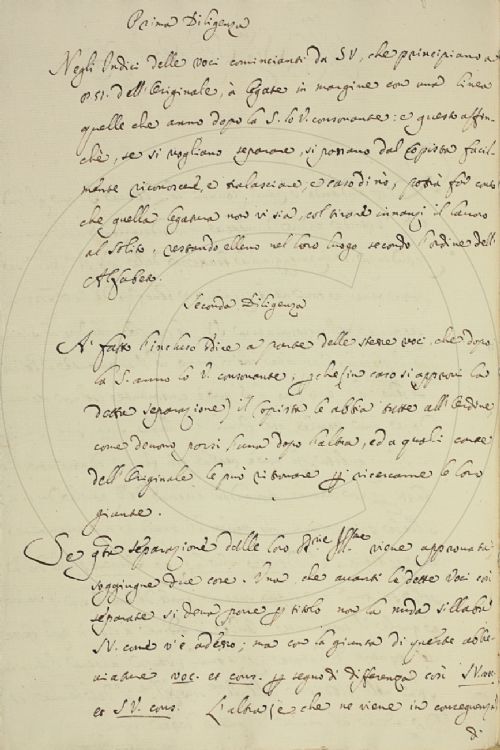 Prima Diligenza
Negli Indici delle voci comincianti da SV, che principiano a
851. dell'Originale, à legate in margine con una linea
quelle che anno dopo la S. lo V. consonante: e questo affin-
chè, se si vogliano separare, si possano dal Copista facil-
mente riconoscere, e tralasciare, e caso di nò, potrà far conto
che quella legatura non vi sia, col tirare innanzi il lavoro
al solito, restando elleno nel loro luogo secondo l'ordine dell'
Alfabeto.
Seconda Diligenza
A' fatto l'inchiuso Indice a parte delle stesse voci, che dopo
la S. anno lo V. consonante; che (in caso si approvi la
detta separazione) il Copista le abbia tutte all'ordine
come devono porsi l'una dopo l'altra, ed a quali carte
dell'Originale le può ritrovare ricercarne le loro
giunte.
Se separazione delle loro viene approvata
soggiugne due cose. Una, che avanti le dette voci così
separate si deva porre titolo non la nuda sillaba
SV. come v'è adesso; ma con la giunta di queste abbre-
viature voc. et cons. segno di differenza così SV. voc.
et SV. cons. L'altra è che ne viene in conseguenza
di